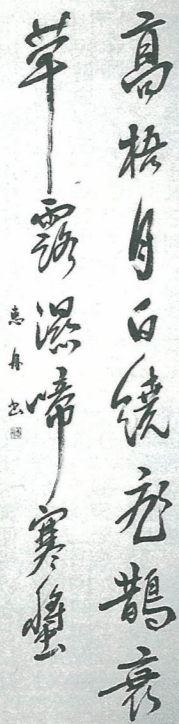 高梧月白繞飛鵲衰
草露濕啼寒螿
惠舟書